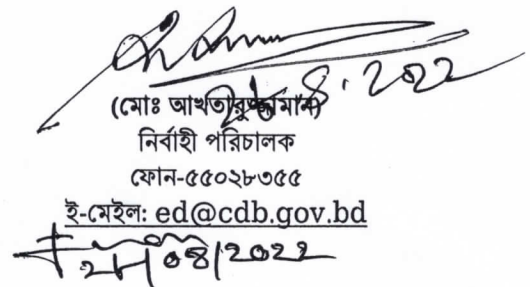 ২৮.৪.২০২২
(মোঃ আখতারুজ্জামান)
নির্বাহী পরিচালক
ফোন-৫৫০২৮৩৫৫
ই-মেইল: ed@cdb.gov.bd
০৪/২০২২